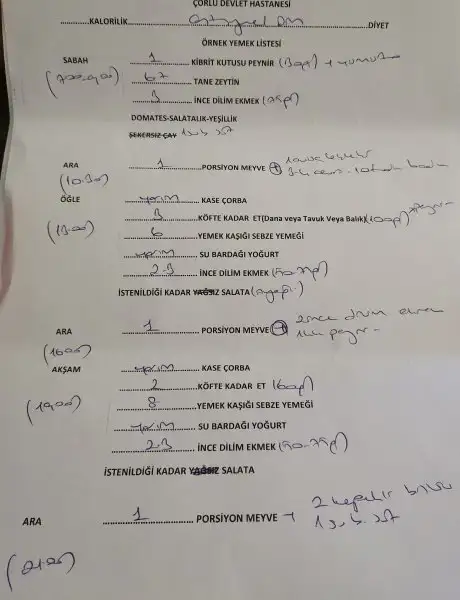 ÇORLU DEVLET HASTANESİ
..........KALORİLİK................................................DİYET
ÖRNEK YEMEK LİSTESİ
SABAH 1 KİBRİT KUTUSU PEYNİR (30gr) + yumurta
6-7 TANE ZEYTİN
3 İNCE DİLİM EKMEK (75gr)
DOMATES-SALATALIK-YEŞİLLİK
ŞEKERSİZ ÇAY 1 s.b. süt
ARA 1 PORSİYON MEYVE +
(10.30)
ÖĞLE yarım KASE ÇORBA
3 KÖFTE KADAR ET(Dana veya Tavuk Veya Balık)
(13.00) 6 YEMEK KAŞIĞI SEBZE YEMEĞİ
yarım SU BARDAĞI YOĞURT
2-3 İNCE DİLİM EKMEK (50-75gr)
İSTENİLDİĞİ KADAR YAĞSIZ SALATA
ARA 1 PORSİYON MEYVE + 2 ince dilim ekmek
(16.00)
AKŞAM yarım KASE ÇORBA
2 KÖFTE KADAR ET (60gr)
(19.00) 8 YEMEK KAŞIĞI SEBZE YEMEĞİ
yarım SU BARDAĞI YOĞURT
2-3 İNCE DİLİM EKMEK (50-75gr)
İSTENİLDİĞİ KADAR YAĞSIZ SALATA
ARA 1 PORSİYON MEYVE + 2 kepekli
1 s.b. süt